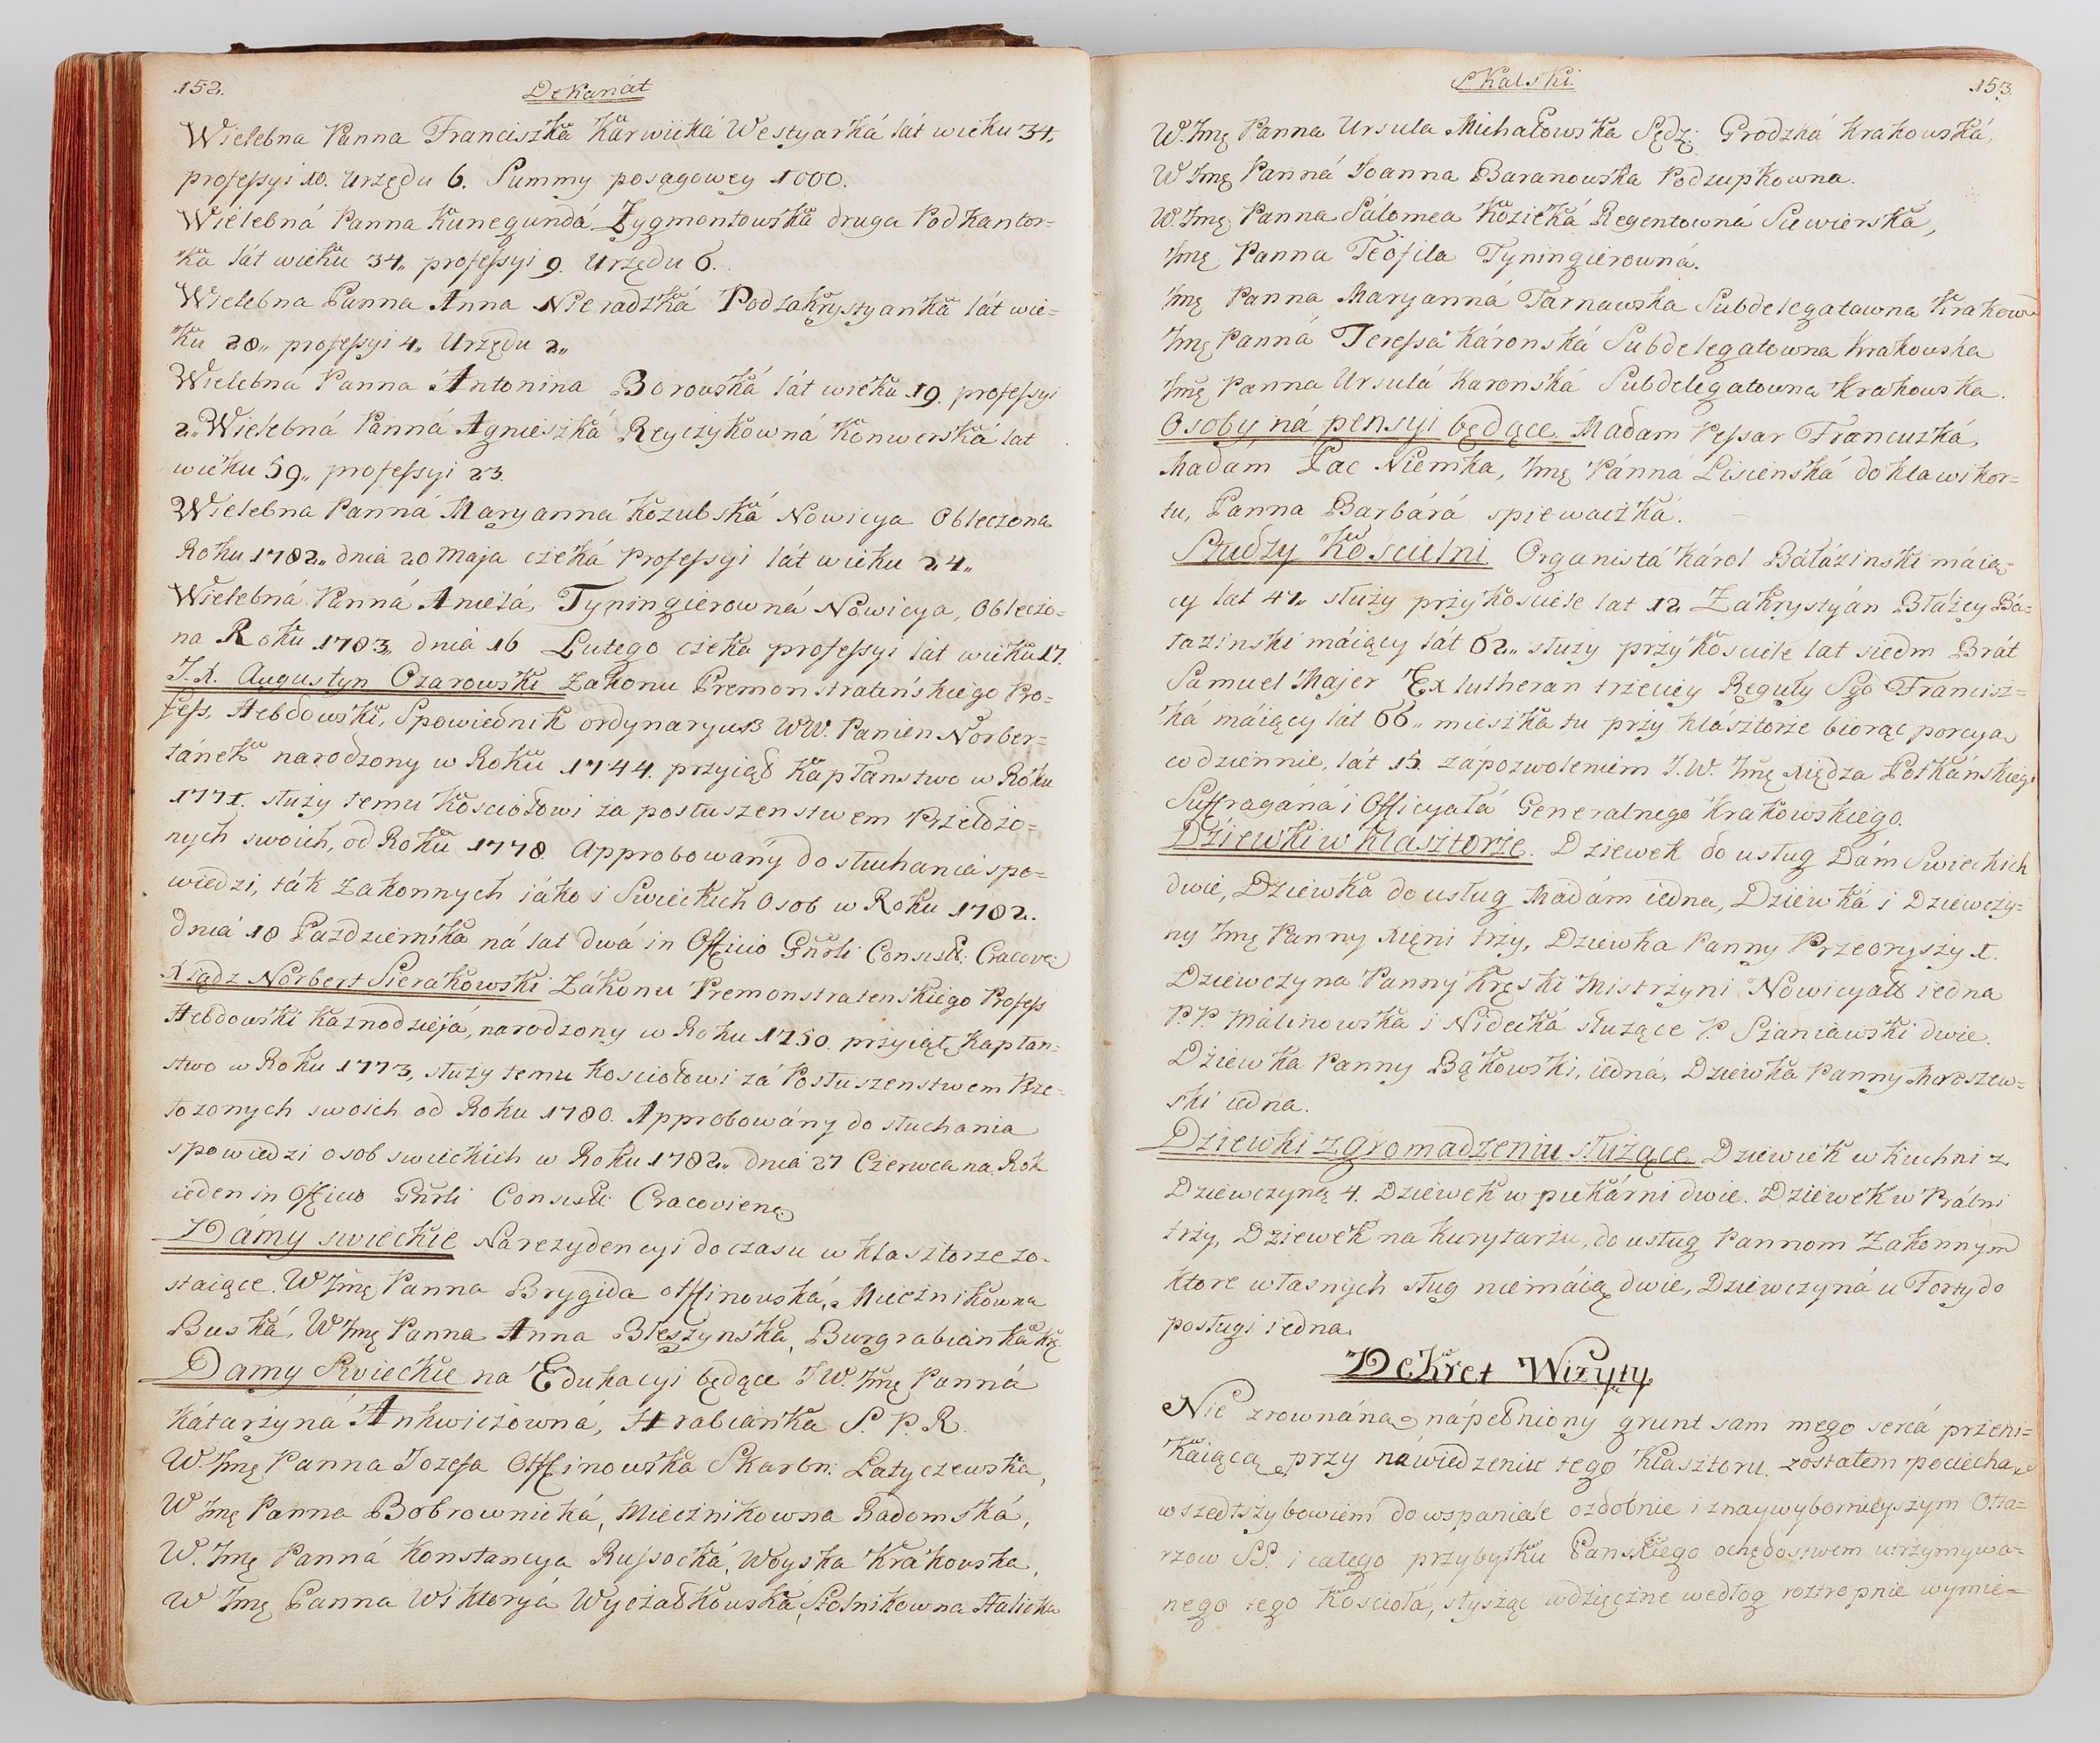 152.
Dekanát
Wielebna Panna Franciszka Karwická Westyarká lát wieku 34.
professyi 10. Urzędu 6. Summy posągowey 1000.
Wielebná Panna Kunegundá Zygmontowska druga Podkantor=
ka lát wieku 34,, professyi 9. Urzędu 6.
Wielebna Panna Anna Nieradzká Podzakrystyanka lát wie=
ku 28,, professyi 4,, Urzędu 2,,
Wielebna Panna Antonina Borowská lát wieku 19. professyi
2,, Wielebná Panná Agnieszká Reyczykowná Konwerská lat
wieku 59,, professyi 23.
Wielebna Panná Maryanna Kozubská Nowicya Obleczona
Roku 1782,, dnia 20 Maja czeká Professyi lát wieku 24,,
Wielebná Panná Anielá, Tyningierowná Nowicya, Obleczo=
na Roku 1783,, dniá 16 Lutego czeka professyi lát wieku 17.
J.X. Augustyn Ozarowski Zakonu Premonstrateńskiego Pro=
fess. Hebdowski, Spowiednik ordynaryusz WW. Panien Norber=
tánek narodzony w Roku 1744. przyiął Kapłanstwo w Roku
1771. służy temu Kościołowi za posłuszenstwem Przełożo=
nych swoich, od Roku 1778 Approbowány do słuchania spo=
wiedzi, ták Zakonnych iáko i Swieckich Osob w Roku 1782.
dniá 18 Pazdziernika ná lat dwá in Officio Gnrli Consist: Cracov:
Xiądz Norbert Sierakowski Zákonu Premonstratenskiego Profess
Hebdowski Kaznodziejá, narodzony w Roku 1750. przyiął Kapłan=
stwo w Roku 1773, służy temu Kosciołowi zá Posłuszenstwem Prze=
łozonych swoich od Roku 1780. Approbowány do słuchania
spowiedzi osob swieckich w Roku 1782,, dniá 27 Czerwca na Rok
ieden in Officio Gnrli Consist: Cracovien
Dámy swieckie Narezydencyi do czasu w klasztorze zo=
staiące. W Jmę Panna Brygida Offinowská, Miecznikowna
Buská, W Jmę Panna Anna Błeszynska, Burgrabianka
Damy Swieckie na Edukacyi będące JW. Jmę Panná
Kátarzyná Ankwiczowná, Hrabianka S. P. R.
W. Jmę Panna Jozefa Offinowska Skarbn: Latyczewska,
W Jmę Panna Bobrownická, Miecznikowna Radomská,
W. Jmę Panná Konstancya Russocká, Woyska Krakowska,
W Jmę Panna Wiktoryá Wyczałkouska, Stolnikowna Halicka
Skalski.
153.
W. Jmę Panna Ursula Michałowska Sędz: Grodzká Krakowská,
W Jmę Panná Joanna Baranowska Podzupkowna.
W. Jmę Panna Sálomea Kozická Regentowná Siewierska,
Jmę Panna Teofila Tyningierowná.
Jmę Panna Maryanná Tarnawska Subdelegatawna Krakow
Jmę Panná Teressa Káronská Subdelegatowna Krakowska
Jmę Panna Ursulá Karonská Subdelegatowna Krakowska.
Osoby ná pensyi będące. Madam Pessar Francuzká,
Madám Pac Niemka, Jmę Pánná Lisienská do klawikor=
tu, Panna Barbárá spiewaczká.
Słudzy Kościelni. Organistá Károl Báłázinski máią=
cy lat 47,, służy przy kosciele lat 12 Zakrystyán Błáżey Bá=
łazinski máiący lát 62,, służy przy kościele lat siedm Brát
Samuel Majer Ex lutheran trzeciey Reguły Sgo Francisz=
ká máiący lát 66,, mieszka tu przy klasztorze biorąc porcya
codziennie, lát 15. zápozwoleniem J.W. Jmę Xiędza Potkánskiego
Suffragáná i Officyałá Generalnego Krakowskiego.
Dziewki w klasztorze. Dziewek do usług Dám Swieckich
dwie, Dziewka do usług Madám iedna, Dziewká i Dziewczy=
ny Jmę Panny Xięni trzy, Dziewka Panny Przeoryszy 1.
Dziewczyna Panny Kręski Mistrzyni Nowicyatu iedna
P.P. Málinowska i Nidecká służące P. Szaniawski dwie.
Dziewka Panny Bąkowski, iedná, Dziewka Panny Moroszew=
ski iedna.
Dziewki zgromadzeniu służące Dziewek w kuchni z
Dziewczyną 4. Dziewek w piekárni dwie. Dziewek w Prálni
trzy, Dziewek na Kurytarzu, do usług Pannom Zakonnym
ktore własnych sług niemáią dwie, Dziewczyná u Forty do
posługi iedna.
Dekret Wizyty.
Nie zrownána nápełniony grunt sam mego sercá przeni=
kaiącą, przy náwiedzeniu tego Klasztoru zostałem pociechą
wszedłszy bowiem do wspaniale ozdobnie i znaywybornieyszym Ołta=
rzow SS. i całego przybytku Panskiego ochędostwem utrzymywa=
nego tego Koscioła, słysząc wdzięczne według roztropnie wymie=